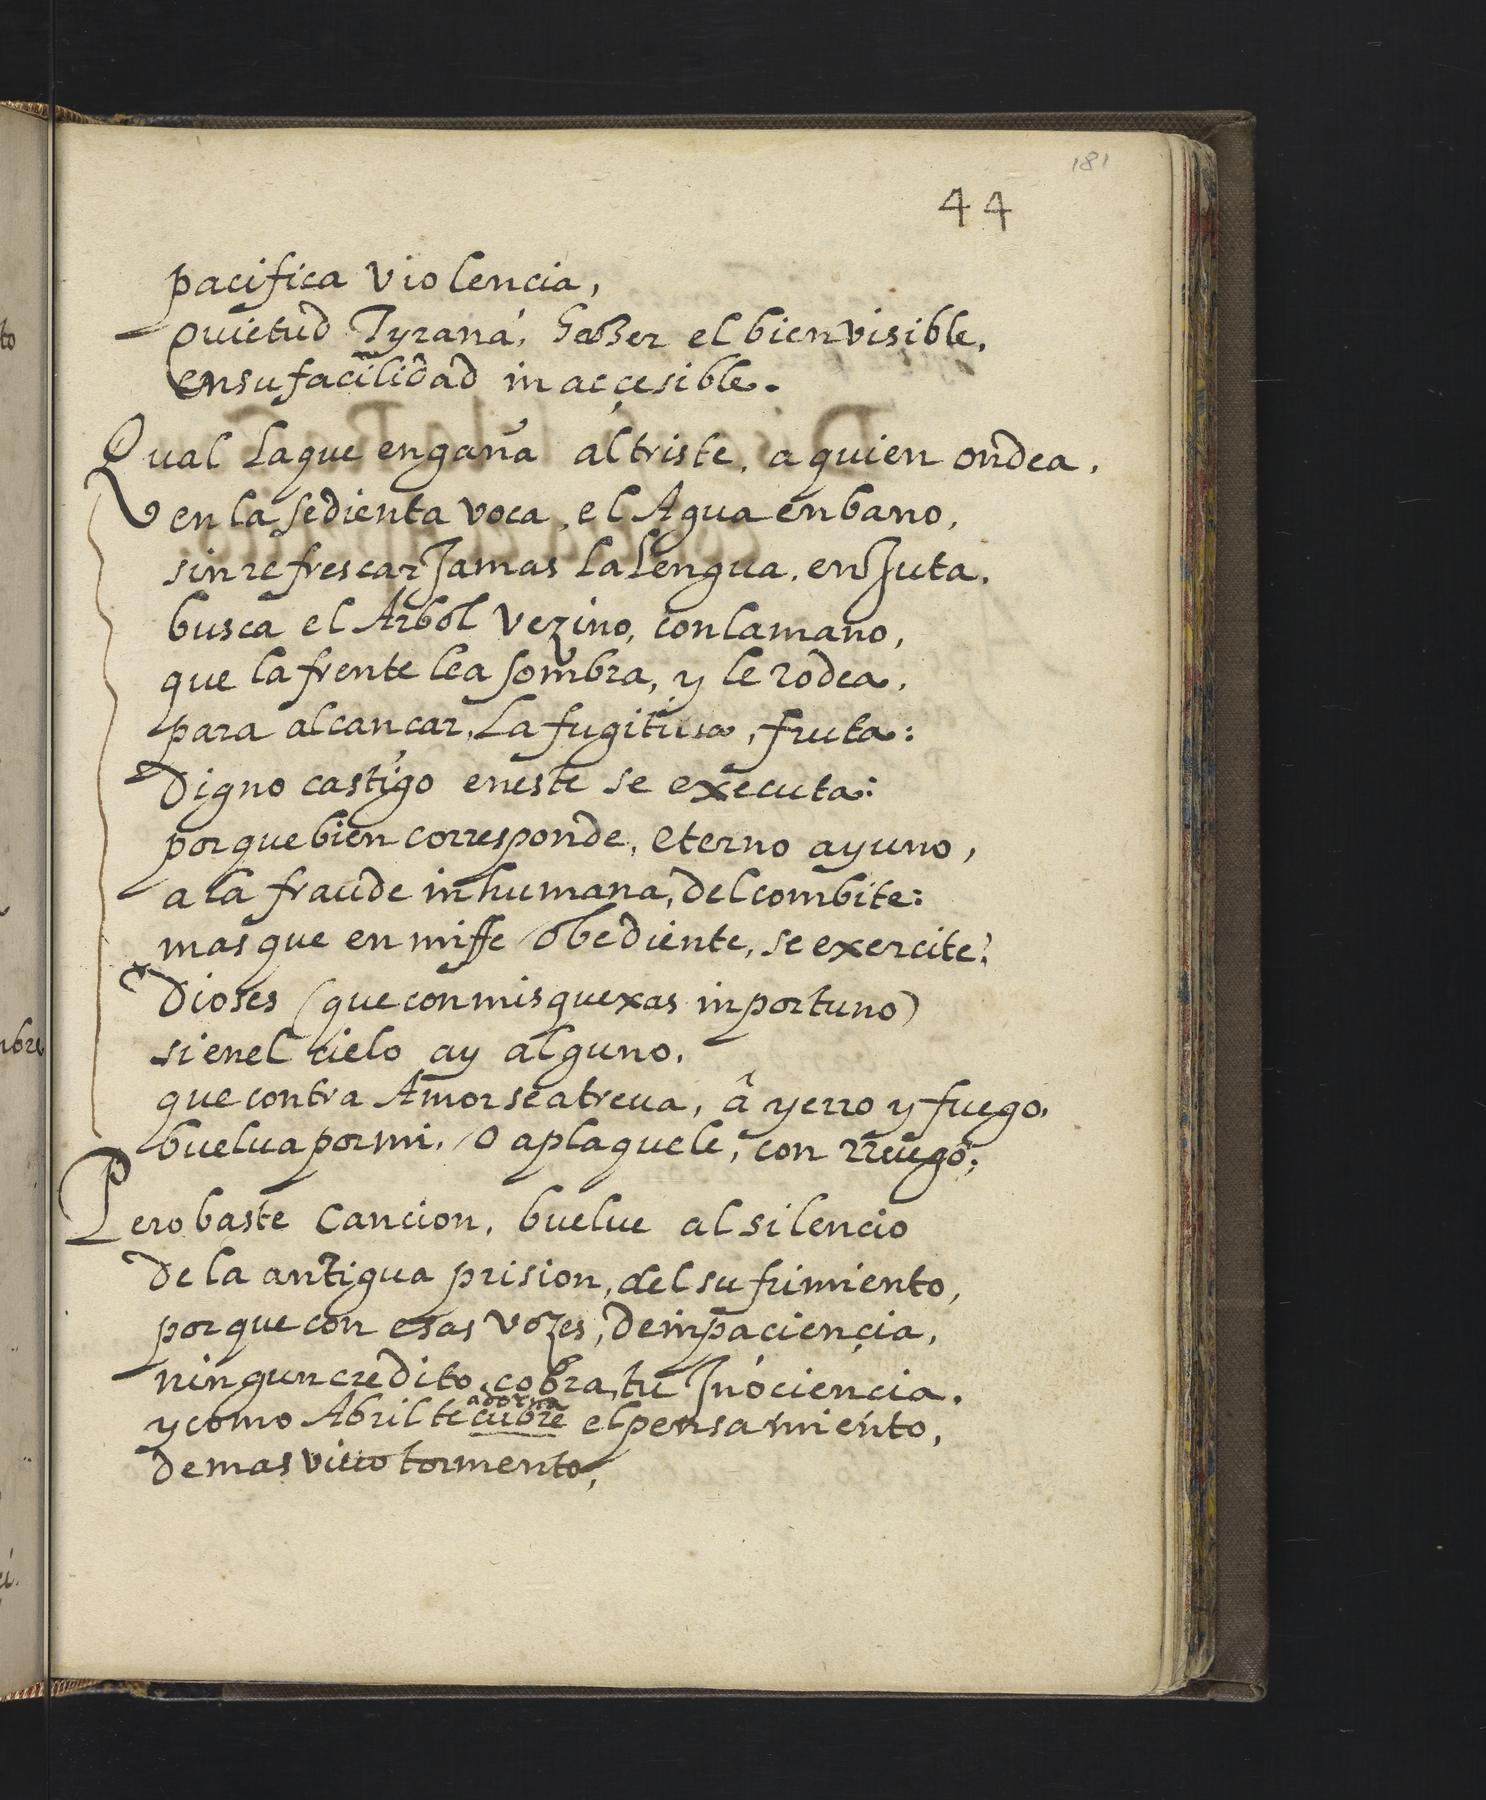 181
44
pacifica violencia,
Quietud Tyrana, haßer el bien visible,
en su facilidad inaccesible.
Qual la que engaña al triste, a quien ondea,
en la sedienta voca, el Agua en bano,
sin refrescar Jamas la lengua, enJuta.
busca el Arbol vezino, con la mano,
que la frente le a sombra, y le rodea,
para alcançar, La fugitiua, fruta:
Digno castigo en este se executa:
porque bien corresponde, eterno ayuno,
a la fraude inhumana, del combite:
mas que en mi ffe obediente, se exercite?
Dioses (que con mis quexas inportuno)
si en el cielo ay alguno,
que contra Amor se atreua, â yerro y fuego,
buelua por mi, o aplaquele, con rruego;
Pero baste Cancion, buelue al silencio
De la antigua prision, del sufrimiento,
porque con esas vozes, de inpaciençia,
ningun credito, cobra, tu Inociençia.
adorna
y como Abril te cubre el pensamiento,
de mas viuo tormento,